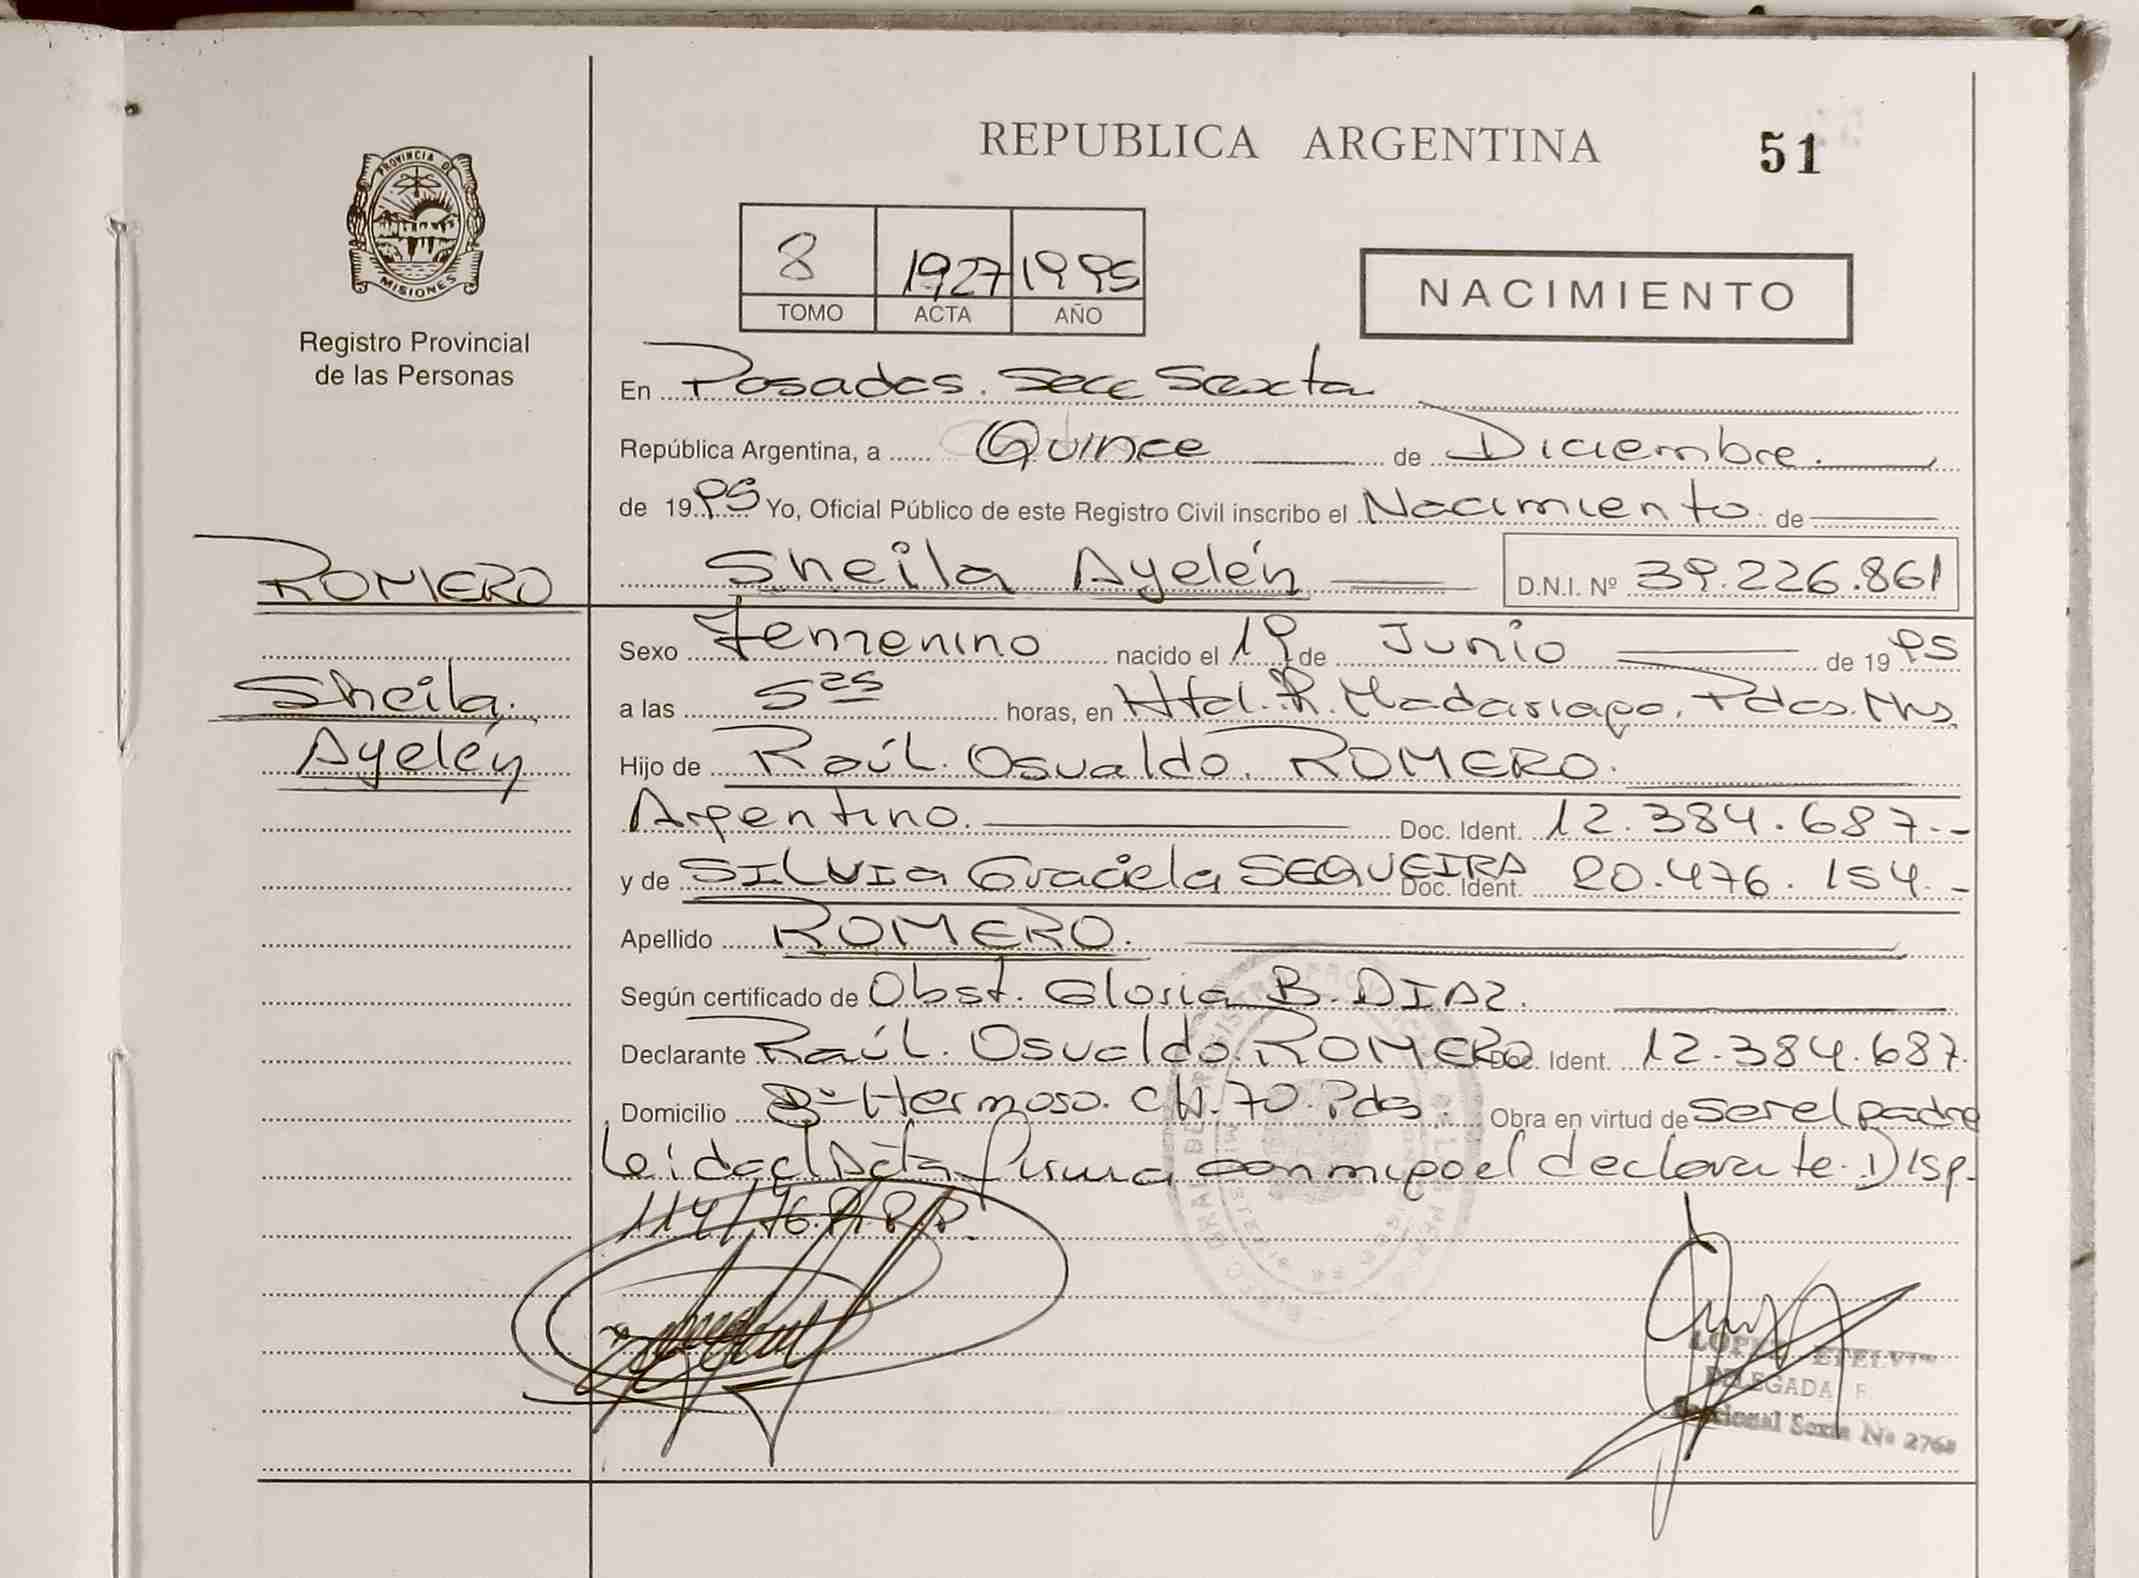 REPUBLICA ARGENTINA
51
PROVINCIA DE
MISIONES
Registro Provincial
de las Personas
8 1927 1995
TOMO ACTA AÑO
NACIMIENTO
En Posadas. Secc Sexta
República Argentina, a Quince de Diciembre.
de 1995 Yo, Oficial Público de este Registro Civil inscribo el Nacimiento de
ROMERO
Sheila Ayelén D.N.I. Nº 39.226.861
Sexo Femenino nacido el 19 de Junio de 1995
Sheila
a las 5 25 horas, en Htal. R. Madariaga. Pdas. Mns.
Ayelén
Hijo de Raúl Osvaldo ROMERO.
Argentino. Doc. Ident. 12.384.687.-
y de SILVIA Graciela SEQUEIRA Doc. Ident. 20.476.154.-
Apellido ROMERO.
Según certificado de Obst. Gloria B. DIAZ.
Declarante Raúl Osvaldo ROMERO Doc. Ident. 12.384.687.
Domicilio Bº Hermoso. CH. 70. Pdas. Obra en virtud de ser el padre
Leida el Acta firma conmigo el declarante. Disp.
114/76.
LOPEZ
DELEGADA
Seccional Sexta Nº 2768